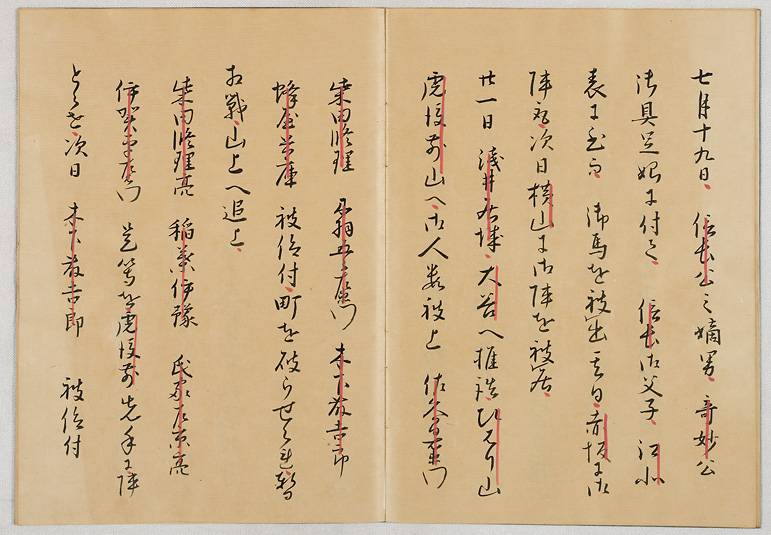 七月十九日信長公之嫡男奇妙公
御具足始に付て信長御父子江北
表に至而御馬を被出其日赤坂に御
陣取次日横山に御陣を被居
廿一日浅井居城大谷へ推詰ひばり山
虎後前山へ御人数被上佐久間右衛門
柴田修理丹羽五郎左衛門木下藤吉郎
蜂屋兵庫被仰付町を破らせられ暫
相戦山上へ追上
柴田修理亮稲葉伊豫氏家左京亮
伊賀平左衛門是等を虎後前先手に陣
とらせ次日木下藤吉郎被仰付